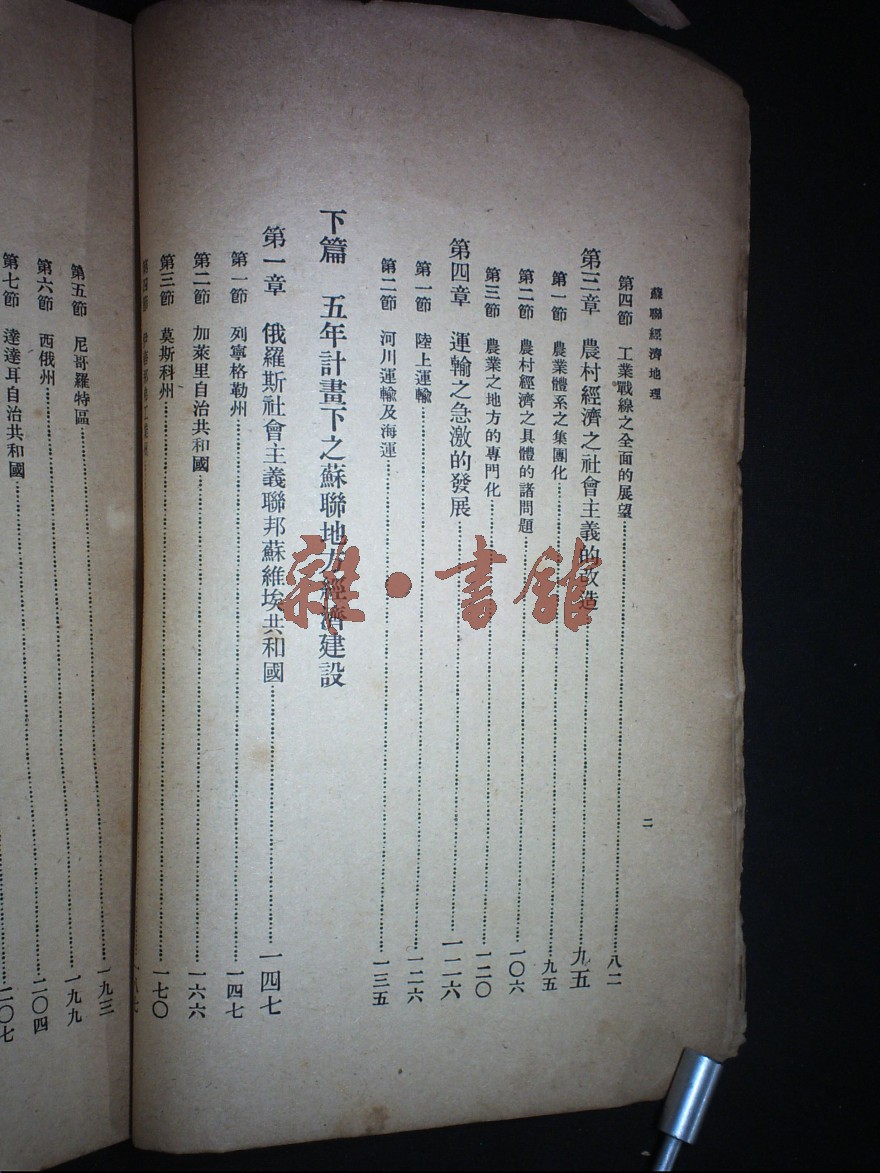 蘇聯經濟地理
二
第四節 工業戰線之全面的展望 八二
第三章 農村經濟之社會主義的改造 九五
第一節 農業體系之集團化 九五
第二節 農村經濟之具體的諸問題 一〇六
第三節 農業之地方的專門化 一二〇
第四章 運輸之急激的發展 一二六
第一節 陸上運輸 一二六
第二節 河川運輸及海運 一三五
下篇 五年計畫下之蘇聯地方經濟建設
第一章 俄羅斯社會主義聯邦蘇維埃共和國 一四七
第一節 列寧格勒州 一四七
第二節 加萊里自治共和國 一六六
第三節 莫斯科州 一七〇
第四節
第五節 尼哥羅特區 一九三
第六節 西俄州 一九九
第七節 達達耳自治共和國 二〇四
二〇七
雜·書館